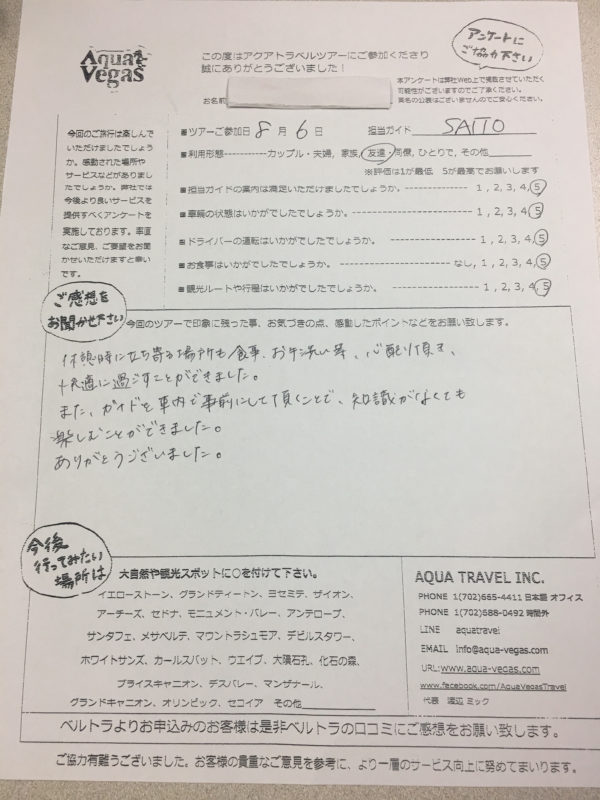 Aqua Vegas
この度はアクアトラベルツアーにご参加くださり
誠にありがとうございました！
アンケートに
ご協力下さい
本アンケートは弊社Web上で掲載させていただく
可能性がございますのでご了承ください。
実名の公表はございませんのでご安心ください。
お名前
今回のご旅行は楽しんで
いただけましたでしょう
か。感動された場所や
サービスなどがありまし
たでしょうか。弊社では
今後より良いサービスを
提供すべくアンケートを
実施しております。率直
なご意見、ご要望をお聞
かせいただけますと幸い
です。
■ツアーご参加日 8月 6日 担当ガイド SAITO
■利用形態-----------カップル・夫婦, 家族, 友達・同僚, ひとりで, その他
※評価は1が最低 5が最高でお願いします
■担当ガイドの案内は満足いただけましたでしょうか。 ---------- 1, 2, 3, 4, 5
■車輌の状態はいかがでしたでしょうか。 ---------- 1, 2, 3, 4, 5
■ドライバーの運転はいかがでしたでしょうか。 ---------- 1, 2, 3, 4, 5
■お食事はいかがでしたでしょうか。 ---------- なし, 1, 2, 3, 4, 5
■観光ルートや行程はいかがでしたでしょうか。 ---------- 1, 2, 3, 4, 5
ご感想を
お聞かせ下さい
今回のツアーで印象に残った事、お気づきの点、感動したポイントなどをお願い致します。
休憩時に立ち寄る場所も食事、お手洗い等、心配り頂き、
快適に過ごすことができました。
また、ガイドを車内で事前にして頂くことで、知識がなくても
楽しむことができました。
ありがとうございました。
今後
行ってみたい
場所は
大自然や観光スポットに○を付けて下さい。
イエローストーン、グランドティートン、ヨセミテ、ザイオン、
アーチーズ、セドナ、モニュメント・バレー、アンテロープ、
サンタフェ、メサベルデ、マウントラシュモア、デビルスタワー、
ホワイトサンズ、カールスバット、ウエイブ、大隕石孔、化石の森、
ブライスキャニオン、デスバレー、マンザナール、
グランドキャニオン、オリンピック、セコイア その他
AQUA TRAVEL INC.
PHONE 1(702)665-4411 日本語 オフィス
PHONE 1(702)688-0492 時間外
LINE aquatravel
EMAIL info@aqua-vegas.com
URL: www.aqua-vegas.com
www.facebook.com/AquaVegasTravel
代表 渡辺 ミック
ベルトラよりお申込みのお客様は是非ベルトラの口コミにご感想をお願い致します。
ご協力有難うございました。お客様の貴重なご意見を参考に、より一層のサービス向上に努めてまいります。